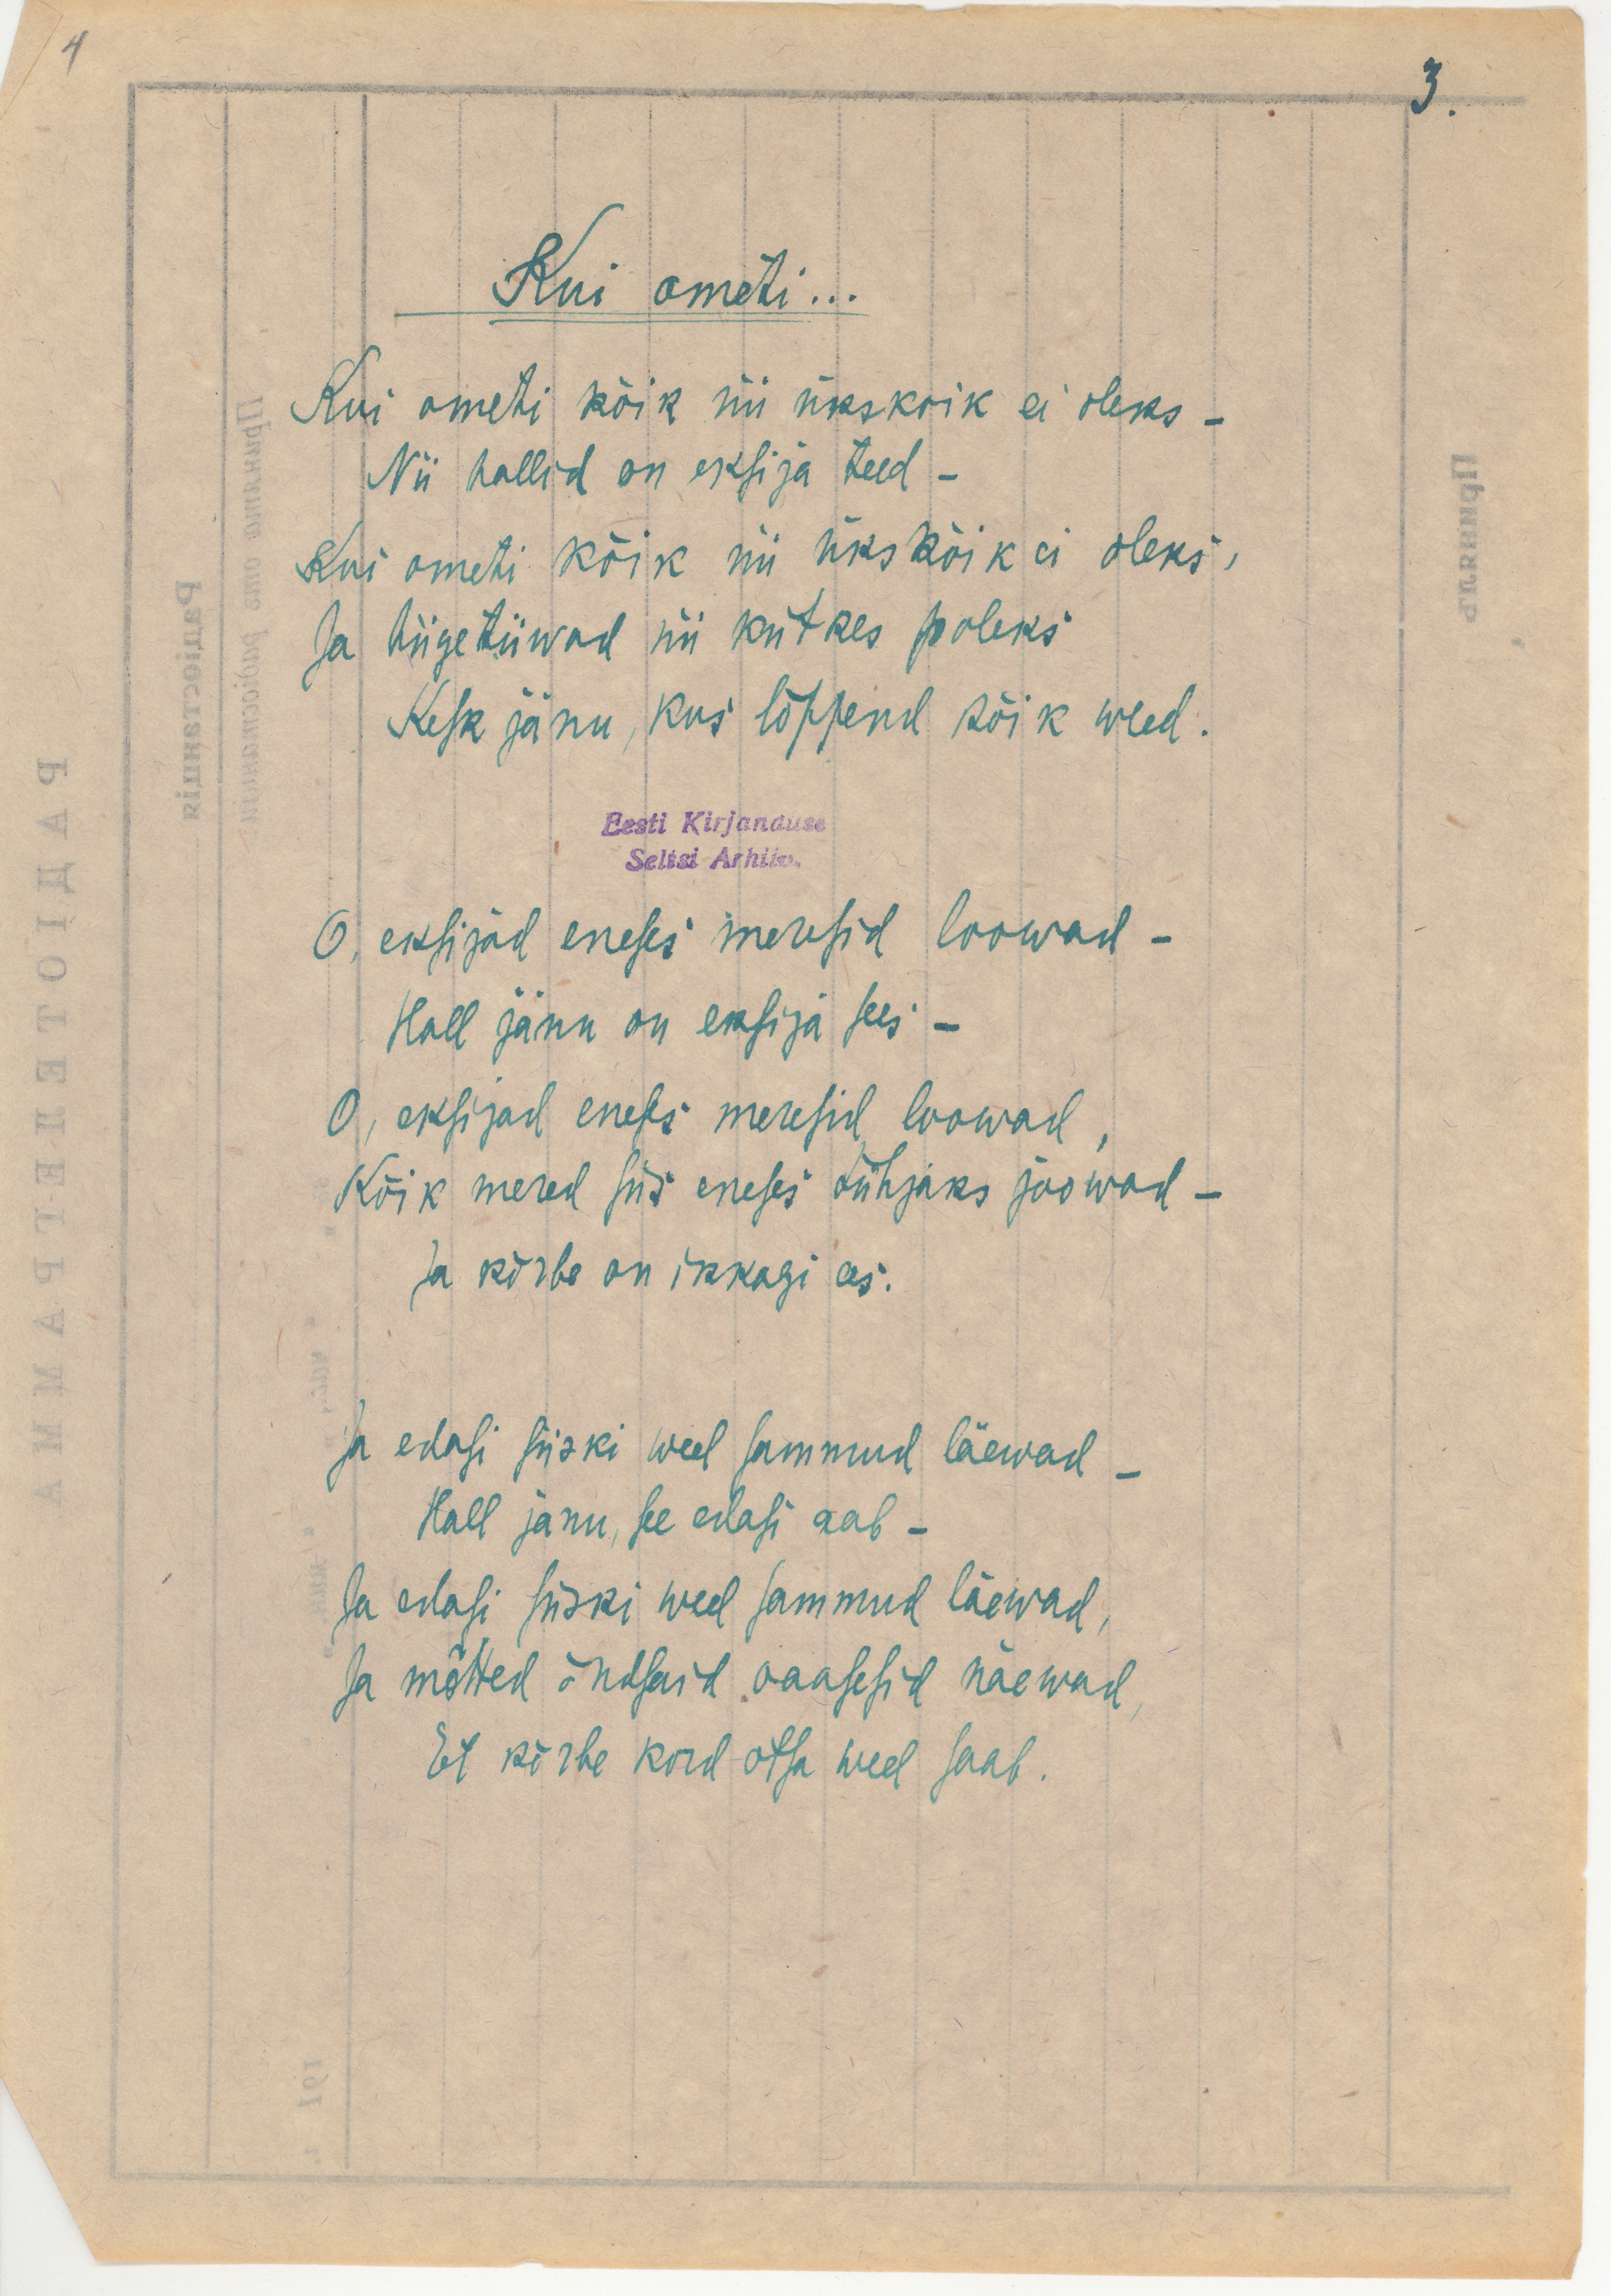 4
3.
Kui ometi...
Kui ometi kõik nii ükskõik ei oleks –
Nii hallid on eksija teed –
Kui ometi kõik nii ükskõik ei oleks,
Ja hiigetiiwad nii kütkes poleks
Kesk jänu, kus lõppend kõik weed.
Eesti Kirjanduse
Seltsi Arhiiv.
O, eksijad eneses meresid loowad –
Hall jänu on eksija sees –
O, eksijad eneses meresid loowad,
Kõik mered siis eneses tühjaks joowad –
Ja kõrbe on ikkagi ees.
Ja edasi siiski weel sammud läewad –
Hall janu, see edasi aab –
Ja edasi siiski weel sammud läewad,
Ja mõtted õndsaid oaasesid näewad,
Et kõrbe kord otsa weel saab.
РАДІОТЕЛЕГРАММА
Радіостанція
Принята отъ радіостанціи
Принялъ
191